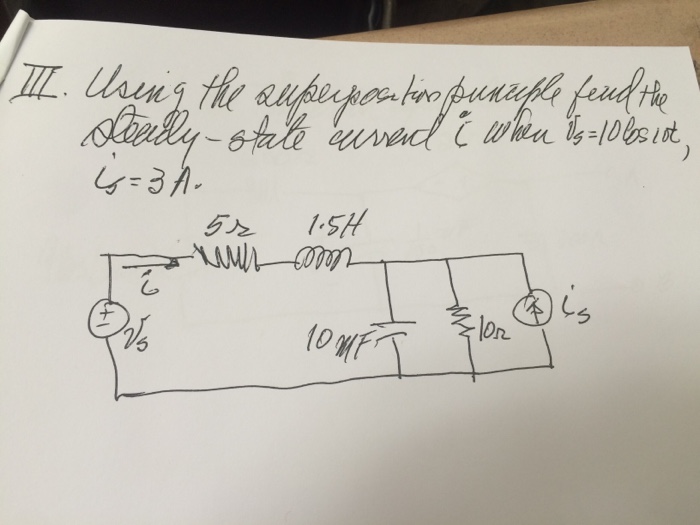 III. Using the superposition principle find the
steady-state current i when Vs=10 cos 10t,
is=3A.
5Ω 1.5H
i
Vs
10 mF
10Ω
is